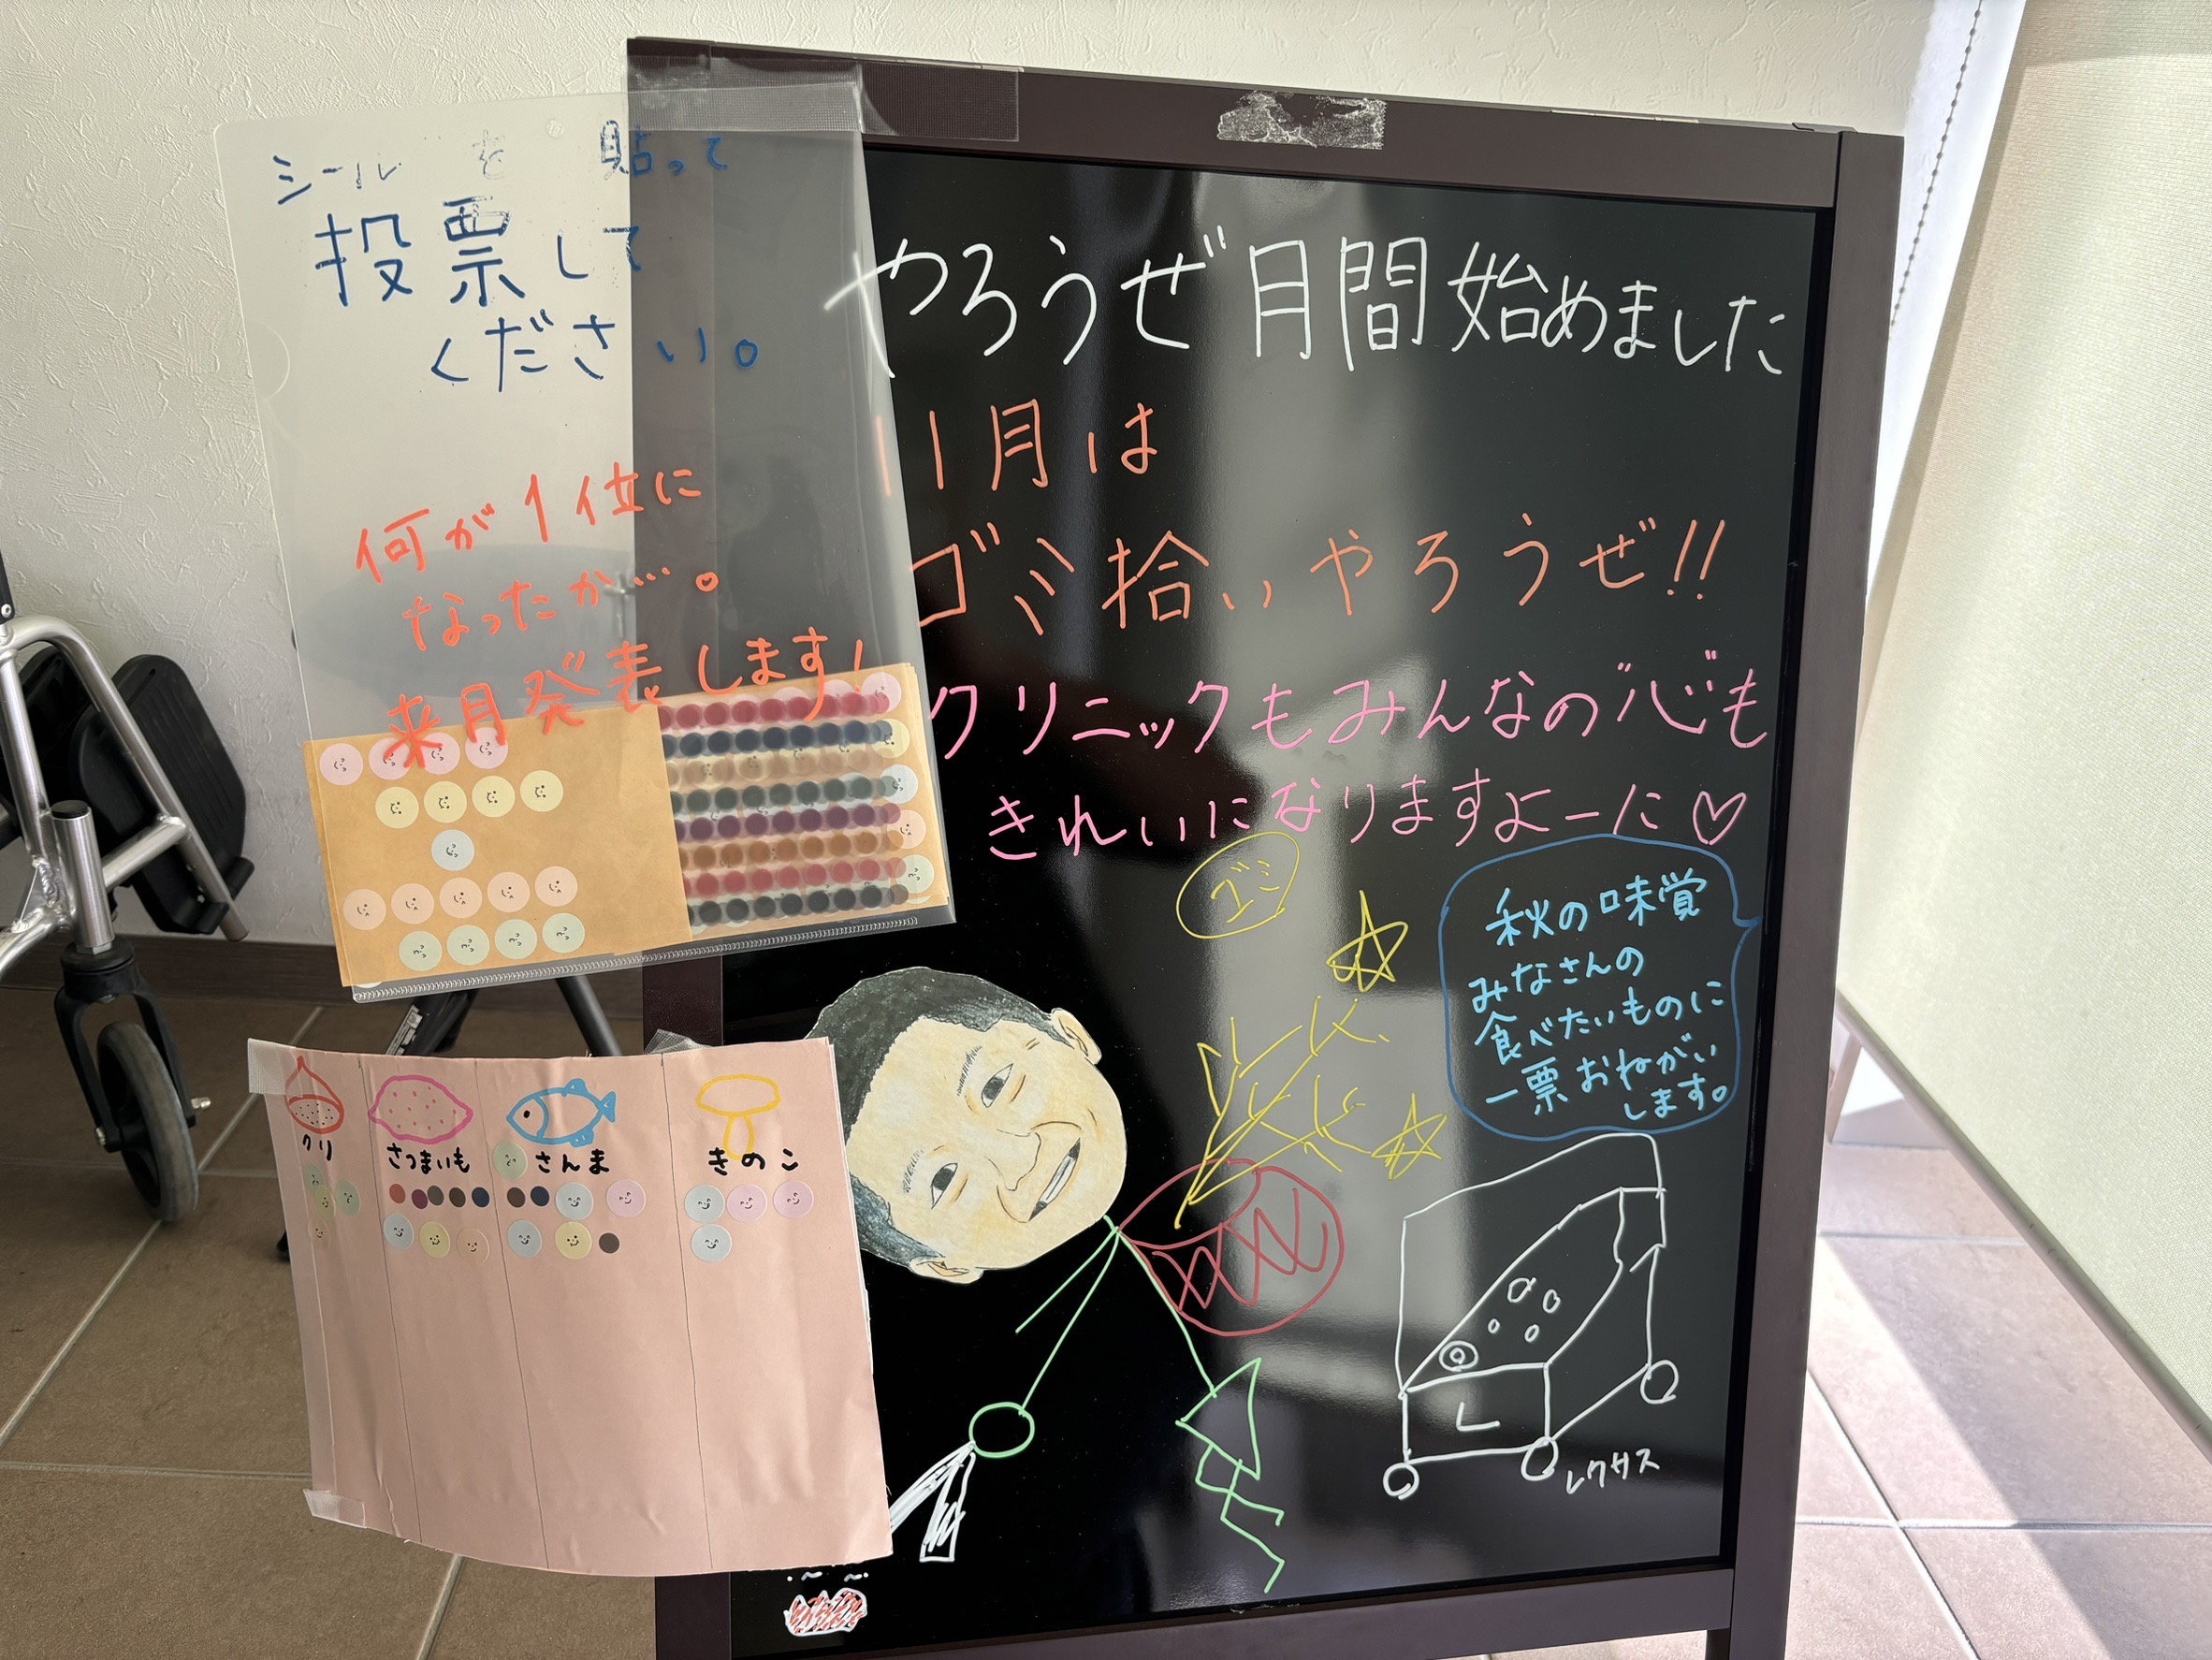 シールを貼って
投票して
ください。
何が1位に
なったか…。
来月発表します!
クリ
さつまいも
さんま
きのこ
やろうぜ月間始めました
11月は
ゴミ拾いやろうぜ!!
クリニックもみんなの心も
きれいになりますよーに♡
ゴミ
秋の味覚
みなさんの
食べたいものに
一票おねがい
します。
L
レクサス